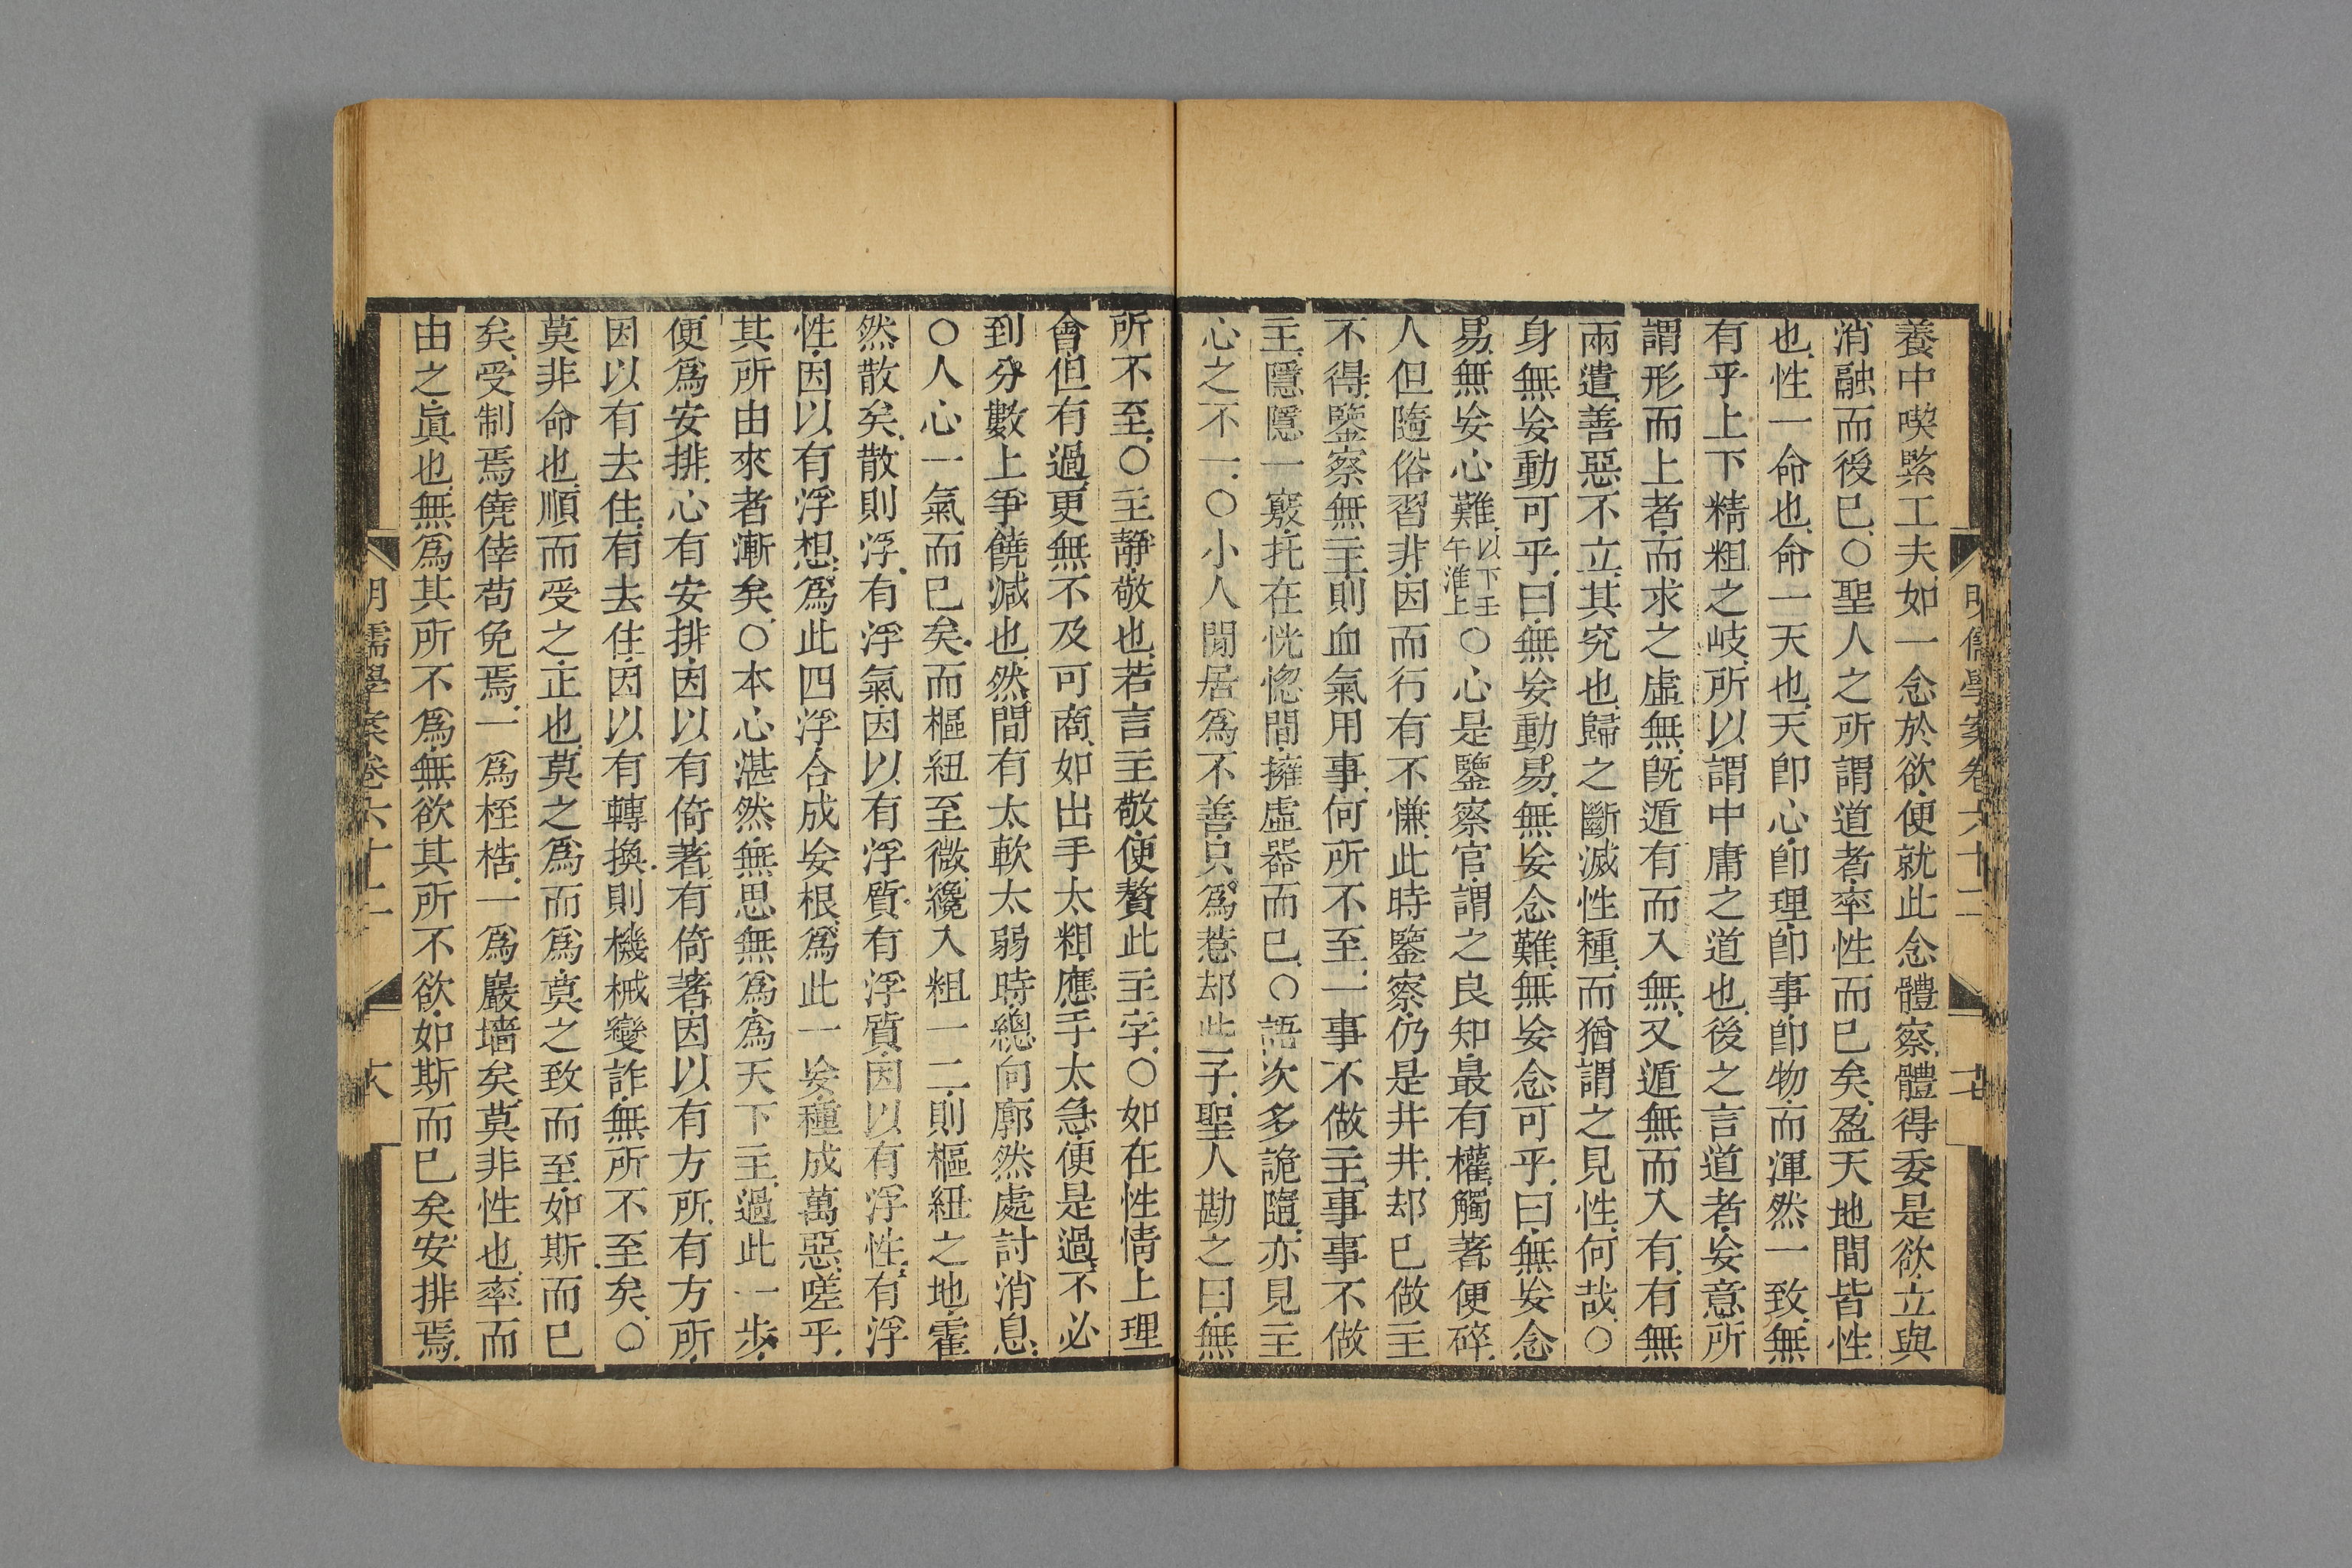 養中喫緊工夫如一念於欲便就此念體察體得委是欲立與
消融而後已○聖人之所謂道者率性而已矣盈天地間皆性
也性一命也命一天也天卽心卽理卽事卽物而渾然一致無
有乎上下精粗之岐所以謂中庸之道也後之言道者妄意所
謂形而上者而求之虛無旣遁有而入無又遁無而入有有無
兩遣善惡不立其究也歸之斷滅性種而猶謂之見性何哉○
身無妄動可乎曰無妄動易無妄念難無妄念可乎曰無妄念
易無妄心難以下壬午淮上○心是鑒察官謂之良知最有權觸著便碎
人但隨俗習非因而行有不慊此時鑒察仍是井井却已做主
不得鑒察無主則血氣用事何所不至一事不做主事事不做
主隱隱一竅托在恍惚間擁虛器而已○語次多詭隨亦見主
心之不一○小人閒居爲不善只爲惹却些子聖人勘之曰無
明儒學案卷六十二
所不至○主靜敬也若言主敬便贅此主字○如在性情上理
會但有過更無不及可商如出手太粗應手太急便是過不必
到分數上爭饒減也然間有太軟太弱時總向廓然處討消息
○人心一氣而已矣而樞紐至微纔入粗一二則樞紐之地霍
然散矣散則浮有浮氣因以有浮質有浮質因以有浮性有浮
性因以有浮想爲此四浮合成妄根爲此一妄種成萬惡嗟乎
其所由來者漸矣○本心湛然無思無爲爲天下主過此一步
便爲安排心有安排因以有倚著有倚著因以有方所有方所
因以有去住有去住因以有轉換則機械變詐無所不至矣○
莫非命也順而受之正也莫之爲而爲莫之致而至如斯而已
矣受制焉僥倖苟免焉一爲桎梏一爲巖墻矣莫非性也率而
由之眞也無爲其所不爲無欲其所不欲如斯而已矣安排焉
明儒學案卷六十二